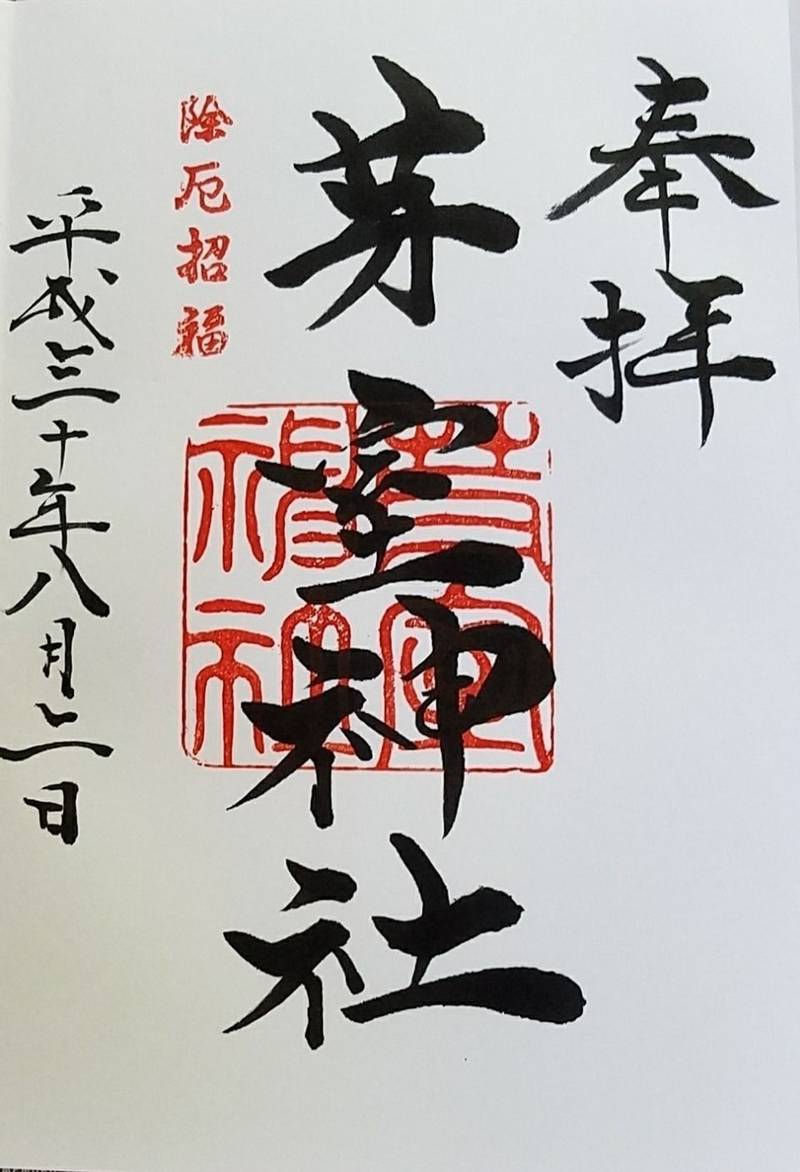 奉拝
芽室神社
芽室
神社
除厄招福
平成三十年八月三日